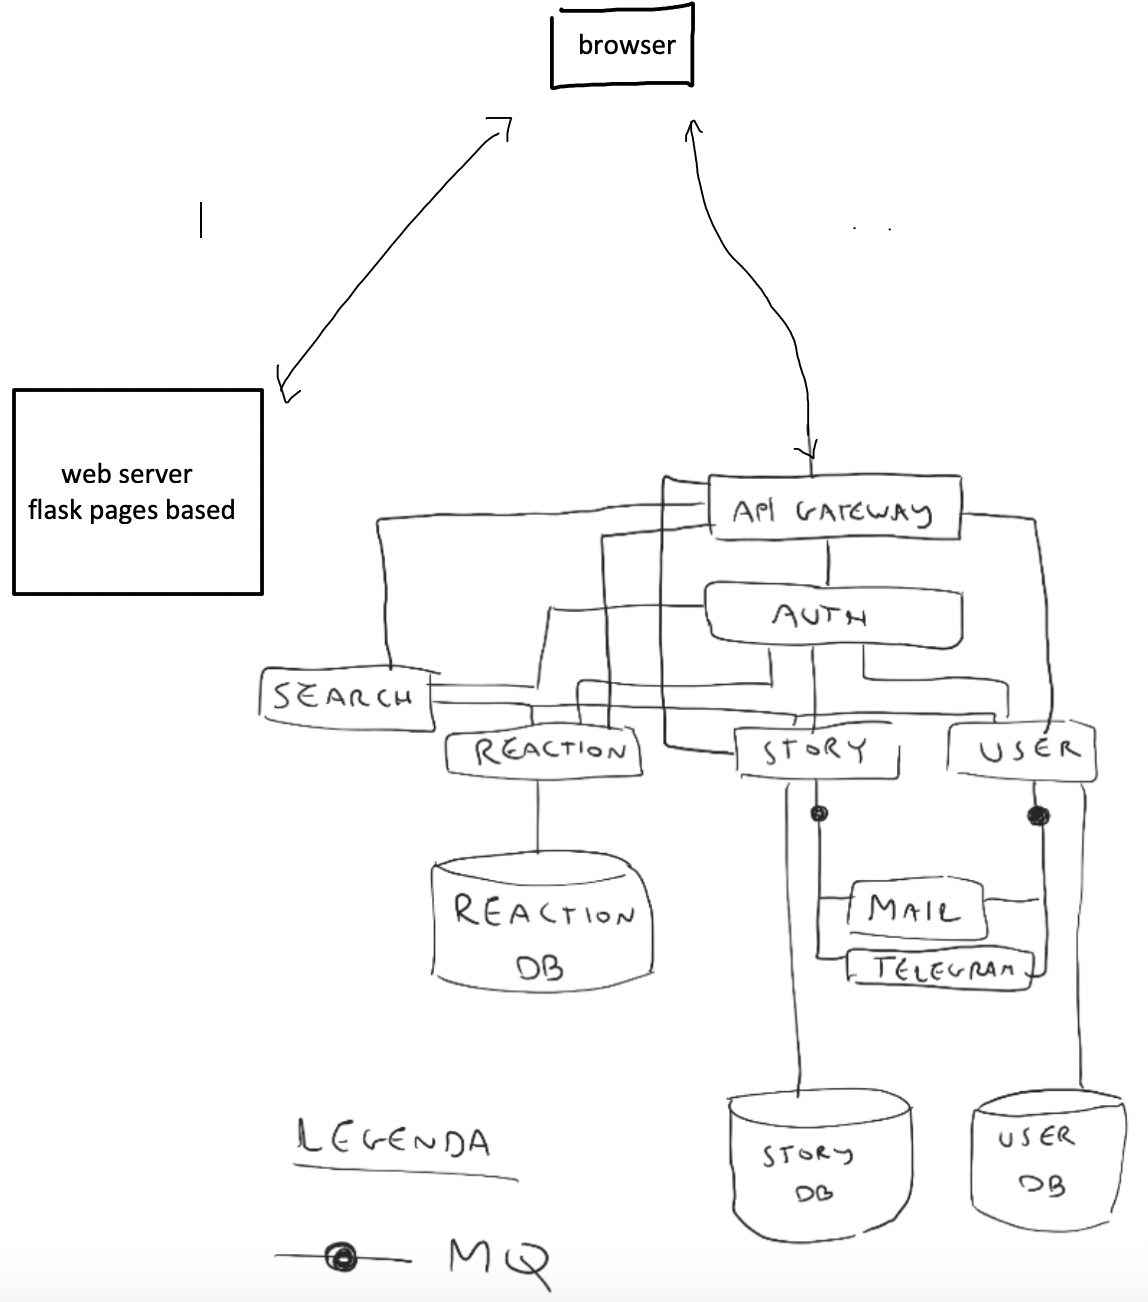 browser
web server
flask pages based
API GATEWAY
AUTH
SEARCH
REACTION
STORY
USER
MAIL
TELEGRAM
REACTION
DB
STORY
DB
USER
DB
LEGENDA
MQ